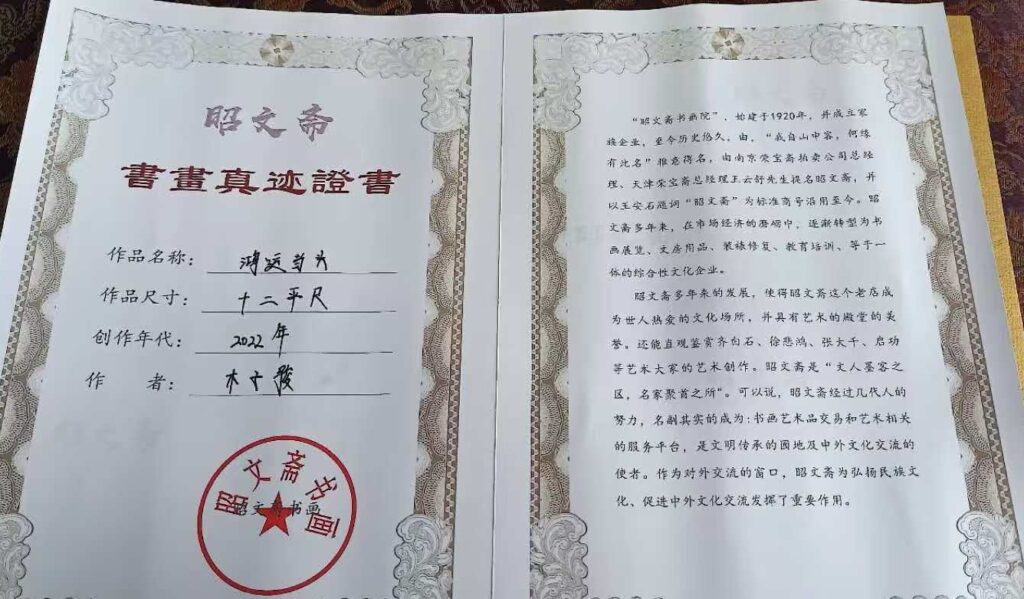 昭文斋
書畫真迹證書
作品名称：鸿运当头
作品尺寸：十二平尺
创作年代：2022年
作 者：
昭文斋书画
昭文斋书画
“昭文斋书画院”，始建于1920年，并成立家
族企业，至今历史悠久。由，“我自山中客，何缘
有此名”雅意得名，由南京荣宝斋拍卖公司总经
理、天津荣宝斋总经理王云舒先生提名昭文斋，并
以王安石题词“昭文斋”为标准商号沿用至今。昭
文斋多年来，在市场经济的磨砺中，逐渐转型为书
画展览、文房用品、装裱修复、教育培训、等于一
体的综合性文化企业。
昭文斋多年来的发展，使得昭文斋这个老店成
为世人热爱的文化场所，并具有艺术的殿堂的美
誉。还能直观鉴赏齐白石、徐悲鸿、张大千、启功
等艺术大家的艺术创作。昭文斋是“文人墨客之
区，名家聚首之所”。可以说，昭文斋经过几代人的
努力，名副其实的成为:书画艺术品交易和艺术相关
的服务平台，是文明传承的园地及中外文化交流的
使者。作为对外交流的窗口，昭文斋为弘扬民族文
化、促进中外文化交流发挥了重要作用。